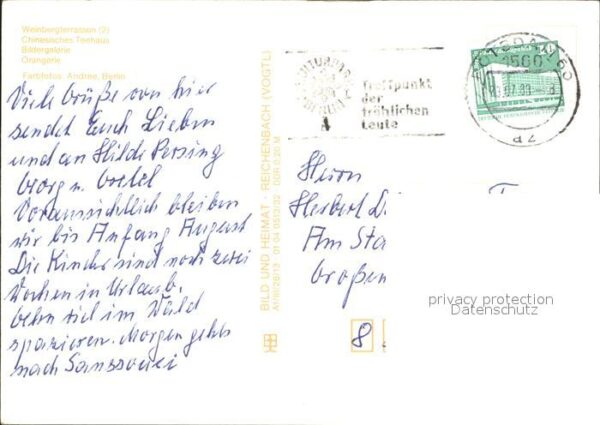 Weinbergterrassen (2)
Chinesisches Teehaus
Bildergalerie
Orangerie
Farbfotos: Andree, Berlin
Viele Grüße von hier
sendet Euch Lieben
und an Hilde Persing
Georg u. Gretel
Voraussichtlich bleiben
wir bis Anfang August
Die Kinder sind noch zwei
Wochen in Urlaub.
sich im Wald
spazieren. Morgen gehts
nach Sanssouci
BILD UND HEIMAT · REICHENBACH (VOGTL)
Treffpunkt
der
fröhlichen
Leute
POTSDAM
1560
az
Herrn
Herbert D
Am Sta
Großen
8
privacy protection
Datenschutz